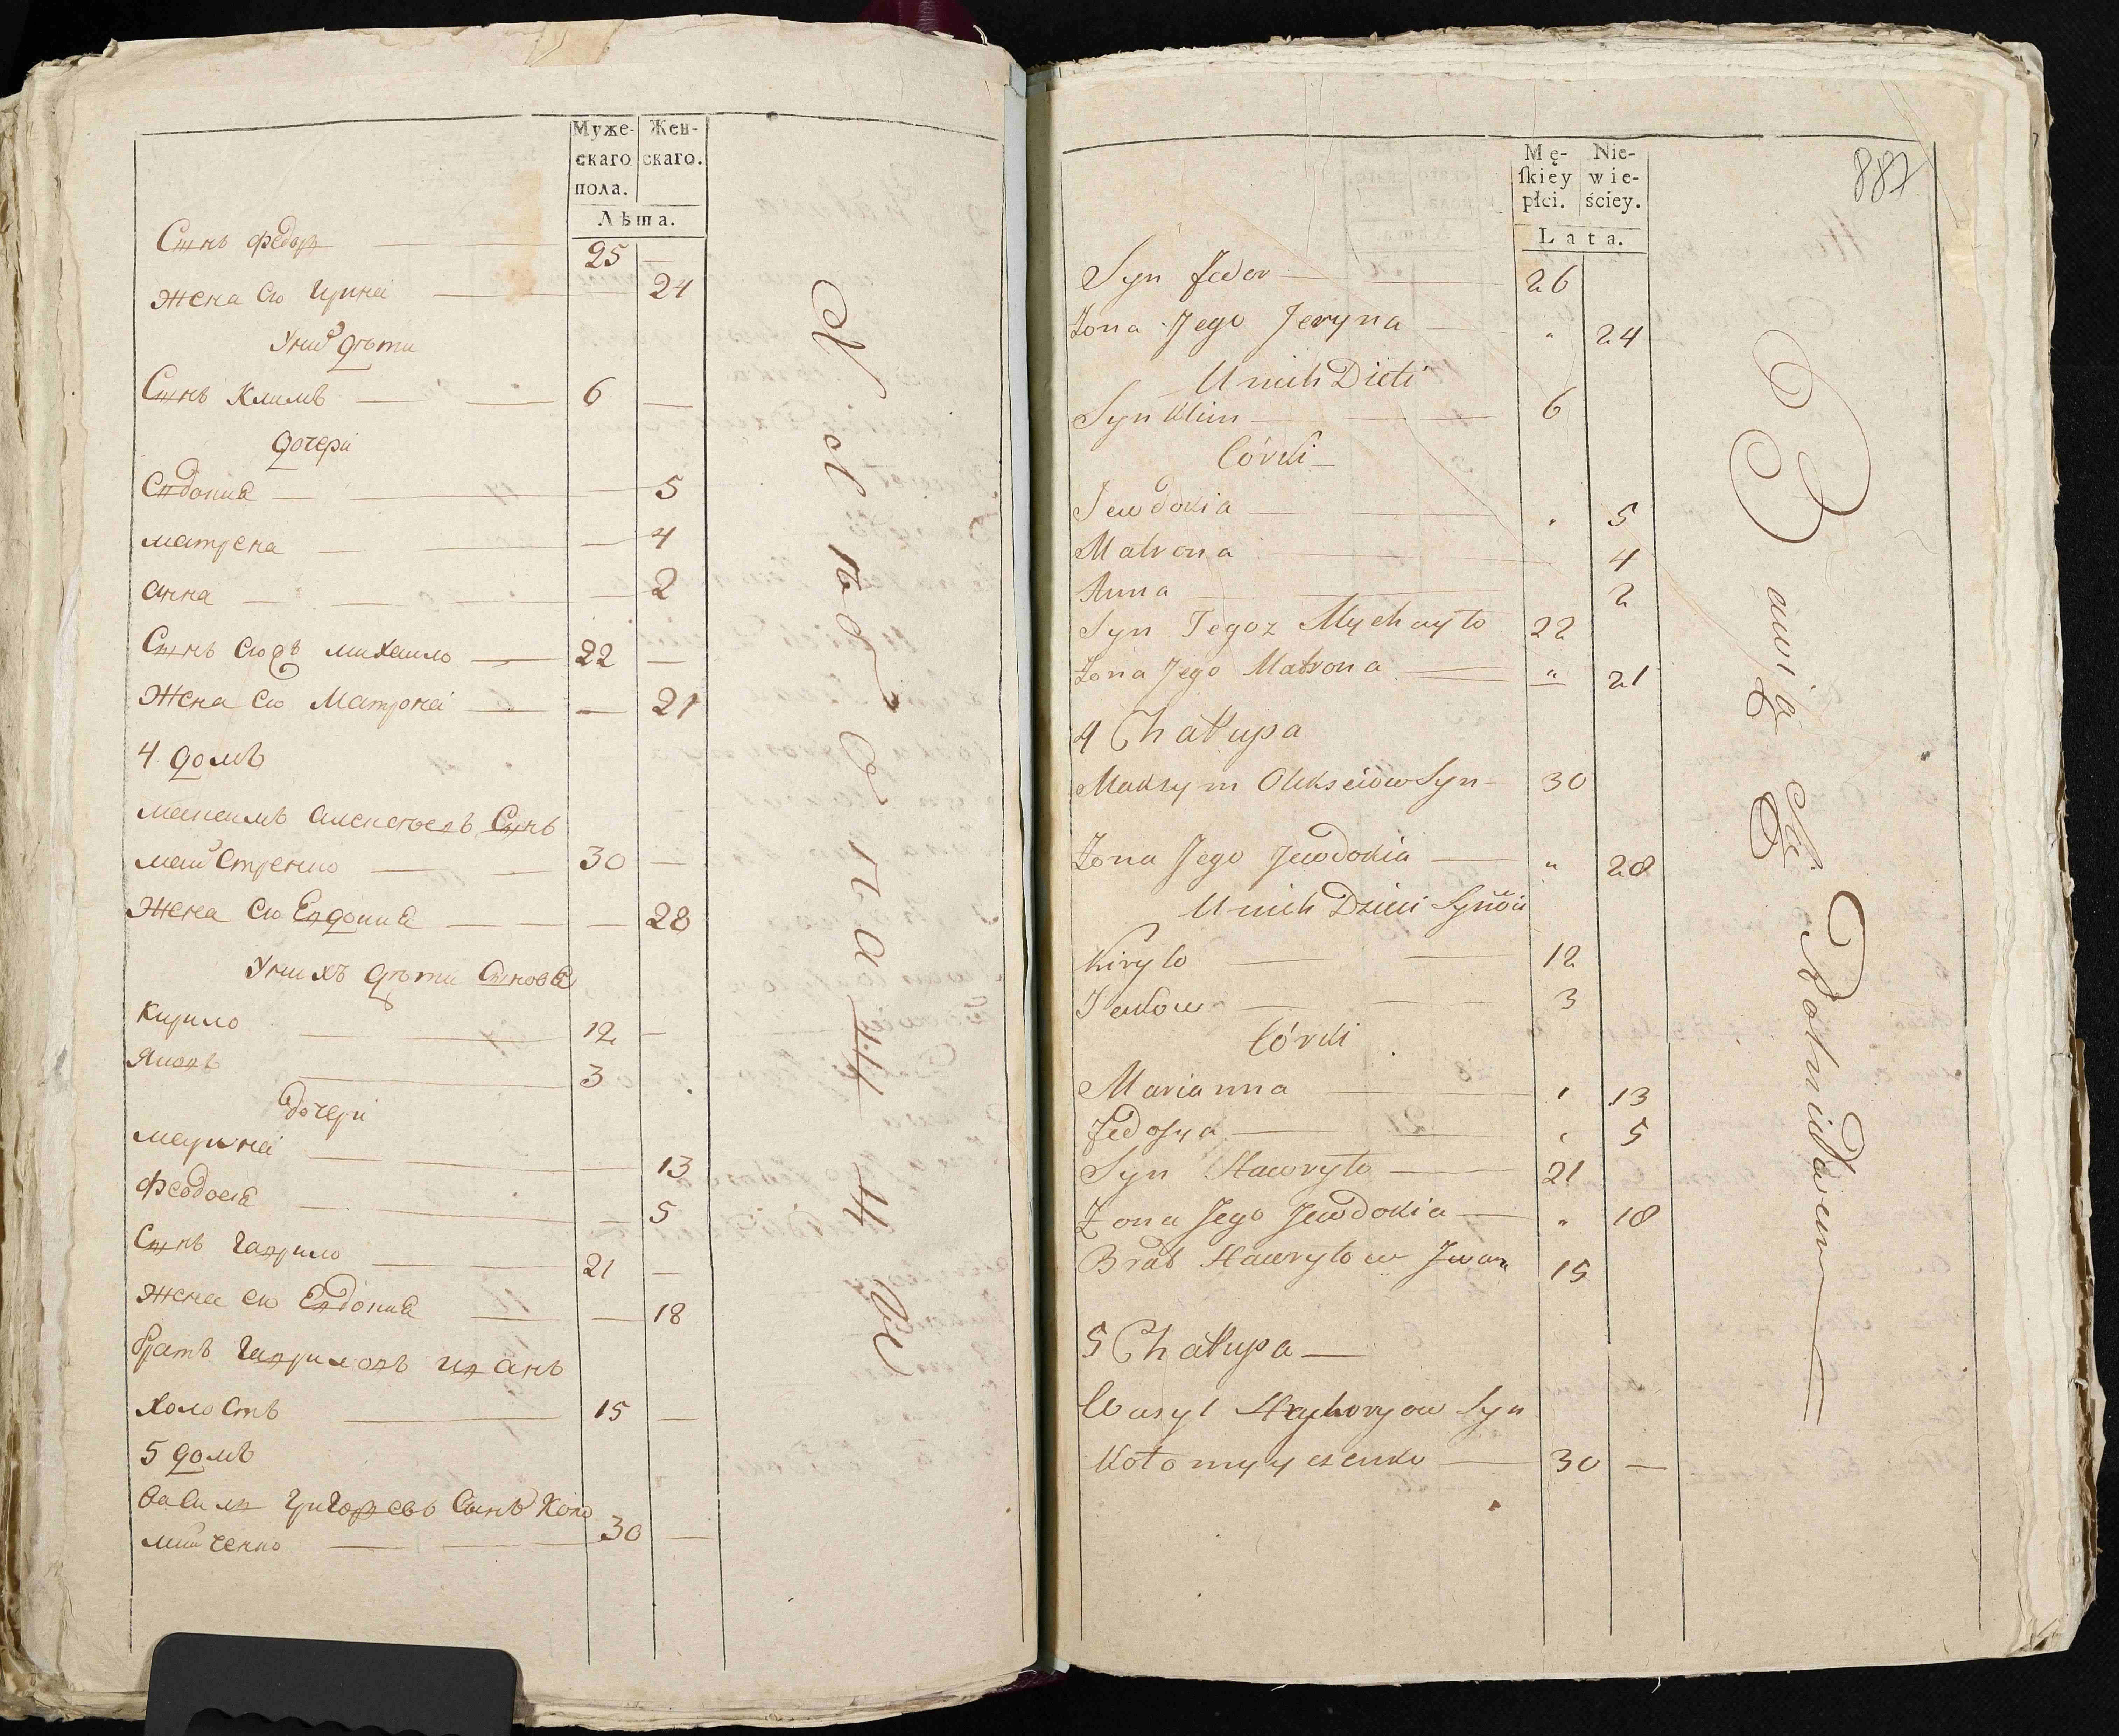 Муже- Жен-
скаго скаго.
пола.
Лѣта.
Сынъ Федоръ 25 —
Жена его Ирина — 24
У них дѣти
Сынъ Климъ 6 —
Дочери
Евдокия — 5
Матрена — 4
Анна — 2
Сынъ егожъ Михайло 22 —
Жена его Матрона — 21
4 домъ
Максимъ Алексѣевъ Сынъ
30 —
Жена его Евдокия — 28
У нихъ дѣти Сыновя
Кирило 12 —
Яковъ 3
дочери
Марина — 13
Феодосия — 5
Сынъ Гаврило 21 —
Жена его Евдокия — 18
братъ Гавриловъ Иванъ
Холостъ 15 —
5 домъ
Василь Григоревъ Сынъ Коло
мийченко 30 —
887
Mę- Nie-
skiey wie-
płci. ściey.
Lata.
Syn Fedor 26
Zona Jego Jeryna " 24
U nich Dieti
Syn Klim 6
Córki
Jewdokia 5
Matrona 4
Anna 2
Syn Tegoz Mychayło 22
Zona Jego Matrona " 21
4 Chałupa
Maksym Olekseiow Syn 30
Zona Jego Jewdokia " 28
U nich Dzieci Synow
Kiryło 12
Jakow 3
Córki
Marianna 13
Fedosya 5
Syn Hawryło 21
Zona Jego Jewdokia " 18
Brat Hawryłow Jwan 15
5 Chałupa
Wasyl Hryhoryow Syn
Kołomyyczenko 30 —